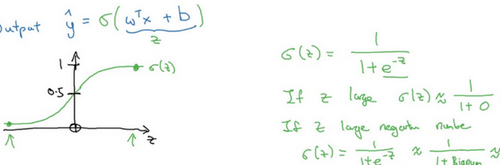 Output ŷ = σ(wᵀx + b)
z
1
σ(z)
0.5
z
σ(z) = 1 / 1 + e^-z
If z large σ(z) ≈ 1 / 1 + 0
If z large negative number
σ(z) = 1 / 1+e^-z ≈ 1 / 1+ Bignum ≈